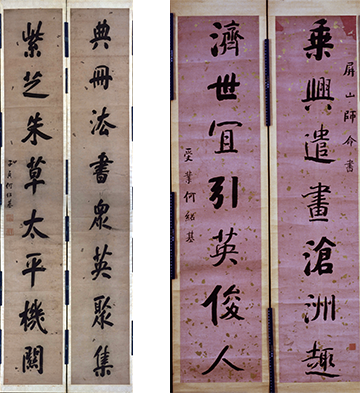 典冊法書衆英聚集
紫芝朱草太平機關
子貞何紹基
屏山師命書
乘興遣畫滄洲趣
濟世冝引英俊人
受業何紹基